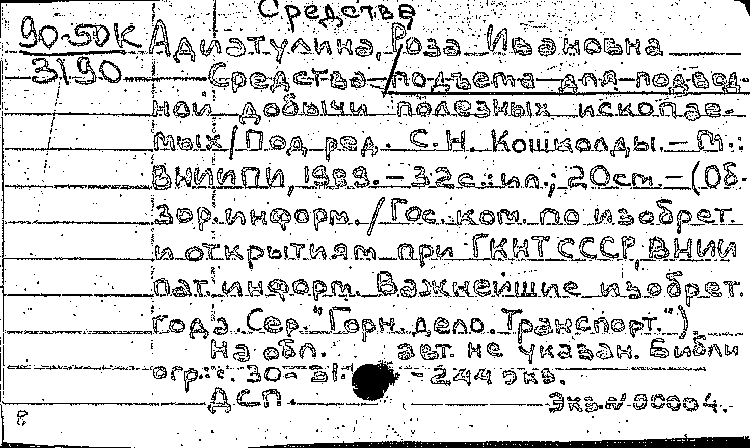 Средства
90-50К Адиатулина, Роза Ивановна
3190 Средства подъема для подвод-
ной добычи полезных ископае-
мых/Под ред. С.Н. Кошколды. - М.:
ВНИИПИ, 1989. - 32с.:ил.; 20см. - (Об-
зор. информ./Гос. ком. по изобрет.
и открытиям при ГКНТ СССР, ВНИИ
пат. информ. Важнейшие изобрет.
года. Сер. "Горн. дело. Транспорт.").
На обл. авт. не указан. Библи
огр.: с. 30-31. - 244 экз.
ДСП. Экз. № 00004.